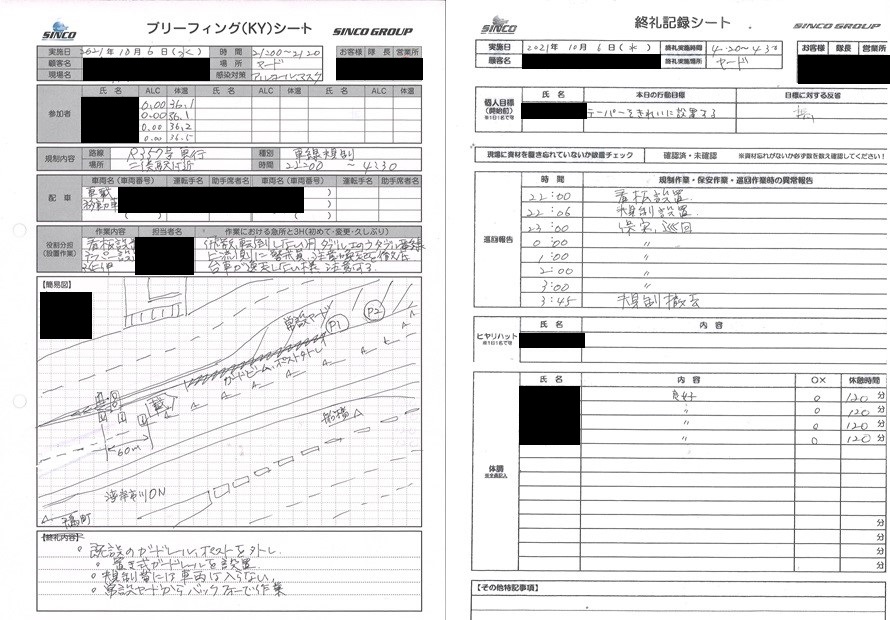 SINCO
ブリーフィング(KY)シート
SINCO GROUP
実施日 2021年10月6日(水) 時間 21:00~21:20
お客様 隊長 営業所
顧客名 場所 ヤード
現場名 感染対策 アルコール マスク
参加者
氏名 ALC 体温 氏名 ALC 体温 氏名 ALC 体温
0.00 36.1
0.00 36.1
0.00 36.2
0.00 36.5
規制内容
路線 R357号 東行 種別 車線規制
場所 二俣 付近 時間 22:00 ~ 4:30
配車
車両名(車両番号) 運転手名 助手席者名 車両名(車両番号) 運転手名 助手席者名
役割分担
(設置作業)
作業内容 担当者名 作業における急所と3H(初めて・変更・久しぶり)
看板設置
台車が逸走しない様、注意する
【簡易図】
常設ヤード
P1
P2
ガードビーム、ポスト外し
60m
船橋
海岸市川ON
千鳥町
【終礼内容】
・既設のガードレール、ポストを外し、
・置き式ガードレールを設置
・規制帯には車両は入らない
・常設ヤードからバックフォーで作業
SINCO
終礼記録シート
SINCO GROUP
実施日 2021年 10月 6日(水) 終礼実施時間 4:20~4:30
お客様 隊長 営業所
顧客名 終礼実施場所 ヤード
個人目標
(開始前)
※1日1名で可
氏名 本日の行動目標 目標に対する反省
テーパーをきれいに設置する
現場に資材を置き忘れていないか数量チェック 確認済・未確認 ※資材忘れがないか必ず数を数え確認してください!
巡回報告
時間 規制作業・保安作業・巡回作業時の異常報告
22:00 看板設置
22:06 規制設置
23:00 保安、巡回
0:00 〃
1:00 〃
2:00 〃
3:00 〃
3:45 規制撤去
ヒヤリハット
※1日1名で可
氏名 内容
体調
※全員記入
氏名 内容 ○× 休憩時間
良好 ○ 120 分
〃 ○ 120 分
〃 ○ 120 分
〃 ○ 120 分
分
分
分
分
【その他特記事項】